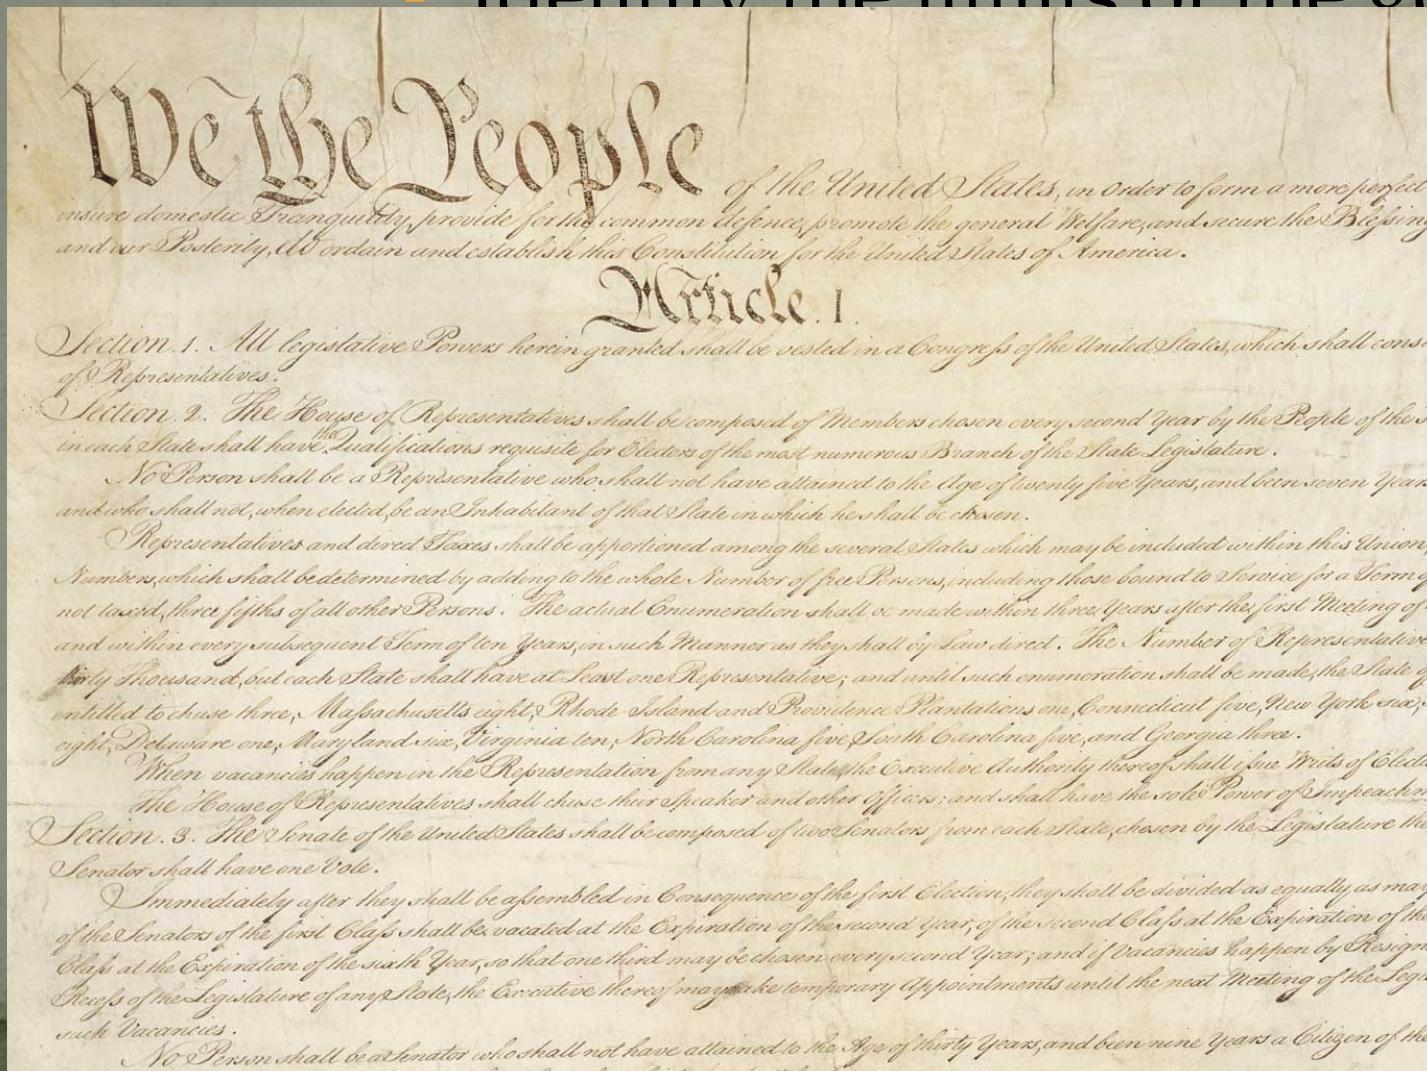 Identify the limits of the
We the People of the United States, in Order to form a more perfect
insure domestic Tranquility, provide for the common defence, promote the general Welfare, and secure the Blessing
and our Posterity, do ordain and establish this Constitution for the United States of America.
Article. I.
Section. 1. All legislative Powers herein granted shall be vested in a Congress of the United States, which shall cons
of Representatives.
Section. 2. The House of Representatives shall be composed of Members chosen every second Year by the People of the s
in each State shall have the Qualifications requisite for Electors of the most numerous Branch of the State Legislature.
No Person shall be a Representative who shall not have attained to the Age of twenty five Years, and been seven Years
and who shall not, when elected, be an Inhabitant of that State in which he shall be chosen.
Representatives and direct Taxes shall be apportioned among the several States which may be included within this Union,
Numbers, which shall be determined by adding to the whole Number of free Persons, including those bound to Service for a Term of
not taxed, three fifths of all other Persons. The actual Enumeration shall be made within three Years after the first Meeting of
and within every subsequent Term of ten Years, in such Manner as they shall by Law direct. The Number of Representatives
thirty Thousand, but each State shall have at Least one Representative; and until such enumeration shall be made, the State of
entitled to chuse three, Massachusetts eight, Rhode Island and Providence Plantations one, Connecticut five, New York six,
eight, Delaware one, Maryland six, Virginia ten, North Carolina five, South Carolina five, and Georgia three.
When vacancies happen in the Representation from any State, the Executive Authority thereof shall issue Writs of Electi
The House of Representatives shall chuse their Speaker and other Officers; and shall have the sole Power of Impeachm
Section. 3. The Senate of the United States shall be composed of two Senators from each State, chosen by the Legislature the
Senator shall have one Vote.
Immediately after they shall be assembled in Consequence of the first Election, they shall be divided as equally as may
of the Senators of the first Class shall be vacated at the Expiration of the second Year, of the second Class at the Expiration of the
Class at the Expiration of the sixth Year, so that one third may be chosen every second Year; and if Vacancies happen by Resign
Recess of the Legislature of any State, the Executive thereof may make temporary Appointments until the next Meeting of the Legi
such Vacancies.
No Person shall be a Senator who shall not have attained to the Age of thirty Years, and been nine Years a Citizen of the